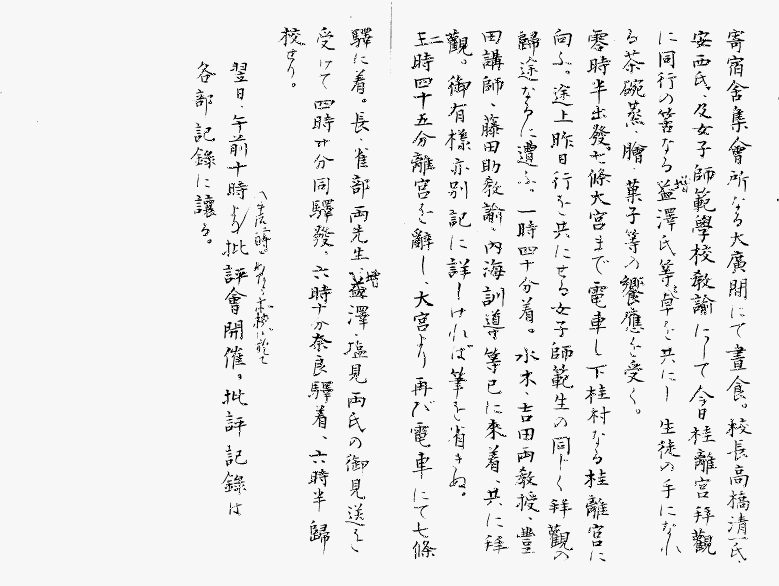 寄宿舍集會所なる大廣間にて晝食。校長高橋清一氏、
安西氏、及女子師範學校敎諭にして今日桂離宮拜觀
に同行の筈なる益澤氏等と卓を共にし生徒の手になれ
増
る茶碗蒸、膾、菓子等の饗應を受く。
零時半出發。七條大宮まで電車し下桂村なる桂離宮に
向ふ。途上昨日行を共にせる女子師範生の同じく拜觀の
歸途なるに遭ふ。一時四十分着。水木、吉田兩敎授、豊
田講師、藤田助敎諭、內海訓導等已に來着、共に拜
觀。御有樣亦別記に詳しければ筆を省きぬ。
三時四十五分離宮を辭し、大宮より再び電車にて七條
二
驛に着。長、雀部両先生、益澤、塩見両氏の御見送を
増
受けて四時廿分同驛發、六時十分奈良驛着、六時半歸
校せり。
翌日、午前十時より批評會開催。批評記錄は
於て
各部記錄に讓る。